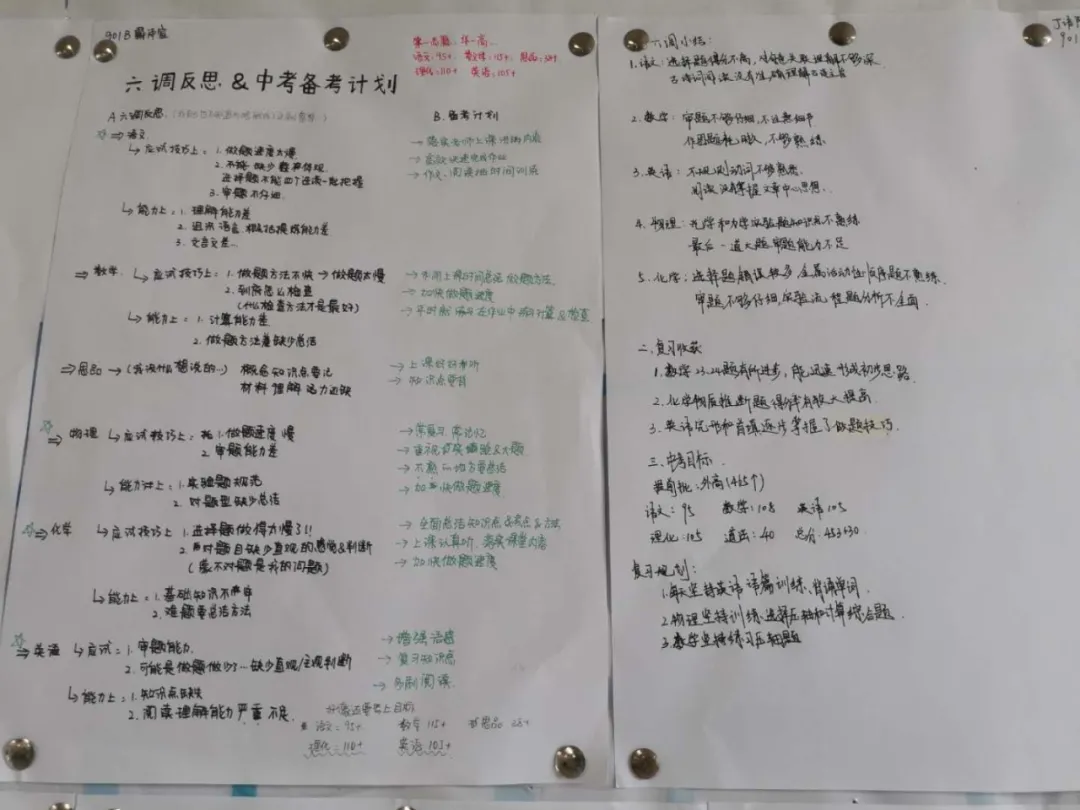 901B
第一志愿:华一高
语文:95+ 数文体:115+ 思品:38+
理化:110+ 英语:105+
六调反思&中考备考计划
A 六调反思.
B. 备考计划
⇒语文
↳应试技巧上:1.做题速度太慢
2.不够缺少整体体现.
3.审题不仔细.
↳能力上:1.理解能力差
2.
3.文言文差...
→落实老师上课讲的内容
→高效快速完成作业
→作文、阅读细时间训练
⇒数学. ↳应试技巧上:1.做题方法不快→做题太慢
2.到底怎么检查
(什么检查方法才是最好)
↳能力上:1.计算能力差.
2.做题方法差缺少总结
做题方法.
→加快做题速度
计算&检查
⇒思品→(我没什么想说的...) 概念知识点要记
材料理解活力还缺
→上课好好听
→知识点要背
⇒物理 ↳应试技巧上:1.做题速度慢
2.审题能力差
↳能力上:1.实验题规范
2.对题型缺少总结
→常复习常记忆
→重视实验&大题
→不熟的地方要总结
→加快做题速度
⇒化学 ↳应试技巧上 1.选择题做得太慢了!!
2.对题目缺少直观的感觉&判断
(要不对题是我的问题)
↳能力上:1.基础知识不牢
2.难题要总结方法
→全面总结知识点&考点&方法
→上课认真听、落实课堂内容
→加快做题速度
⇒英语 ↳应试:1.审题能力.
2.可能是做题做少了...缺少直观/主观判断
↳能力上:1.知识点缺失
2.阅读理解能力严重不足.
→增强语感
→复习知识点
→多刷阅读.
语文:95+ 数学 115+ 思品 38+
理化:110+ 英语 105+
901
一.六调小结:
1.语文:选择题得分不高,
古诗词阅读没有准确理解古诗文意
2.数学:审题不够仔细,不注意细节
不够熟练
3.英语:不规则动词不够熟悉.
阅读没有掌握文章中心思想.
4.物理:光学和力学实验题知识点不熟练
最后一道大题审题能力不足
5.化学:选择题错误较多 金属活动性顺序题不熟练.
审题不够仔细,实验流程题分析不全面.
二.复习收获
1.数学23.24题有所进步,能迅速形成初步思路.
2.化学物质推断题得分率有较大提高.
3.英语完形和首填逐步掌握了做题技巧.
三.中考目标
外高(415↑)
语文:95 数学:108 英语 105
理化:105 道法:40 总分:453+30.
复习规划:
1.每天坚持英语语篇训练、背诵单词.
2.物理坚持训练选择压轴和计算综合题.
3.数学坚持练习压轴题